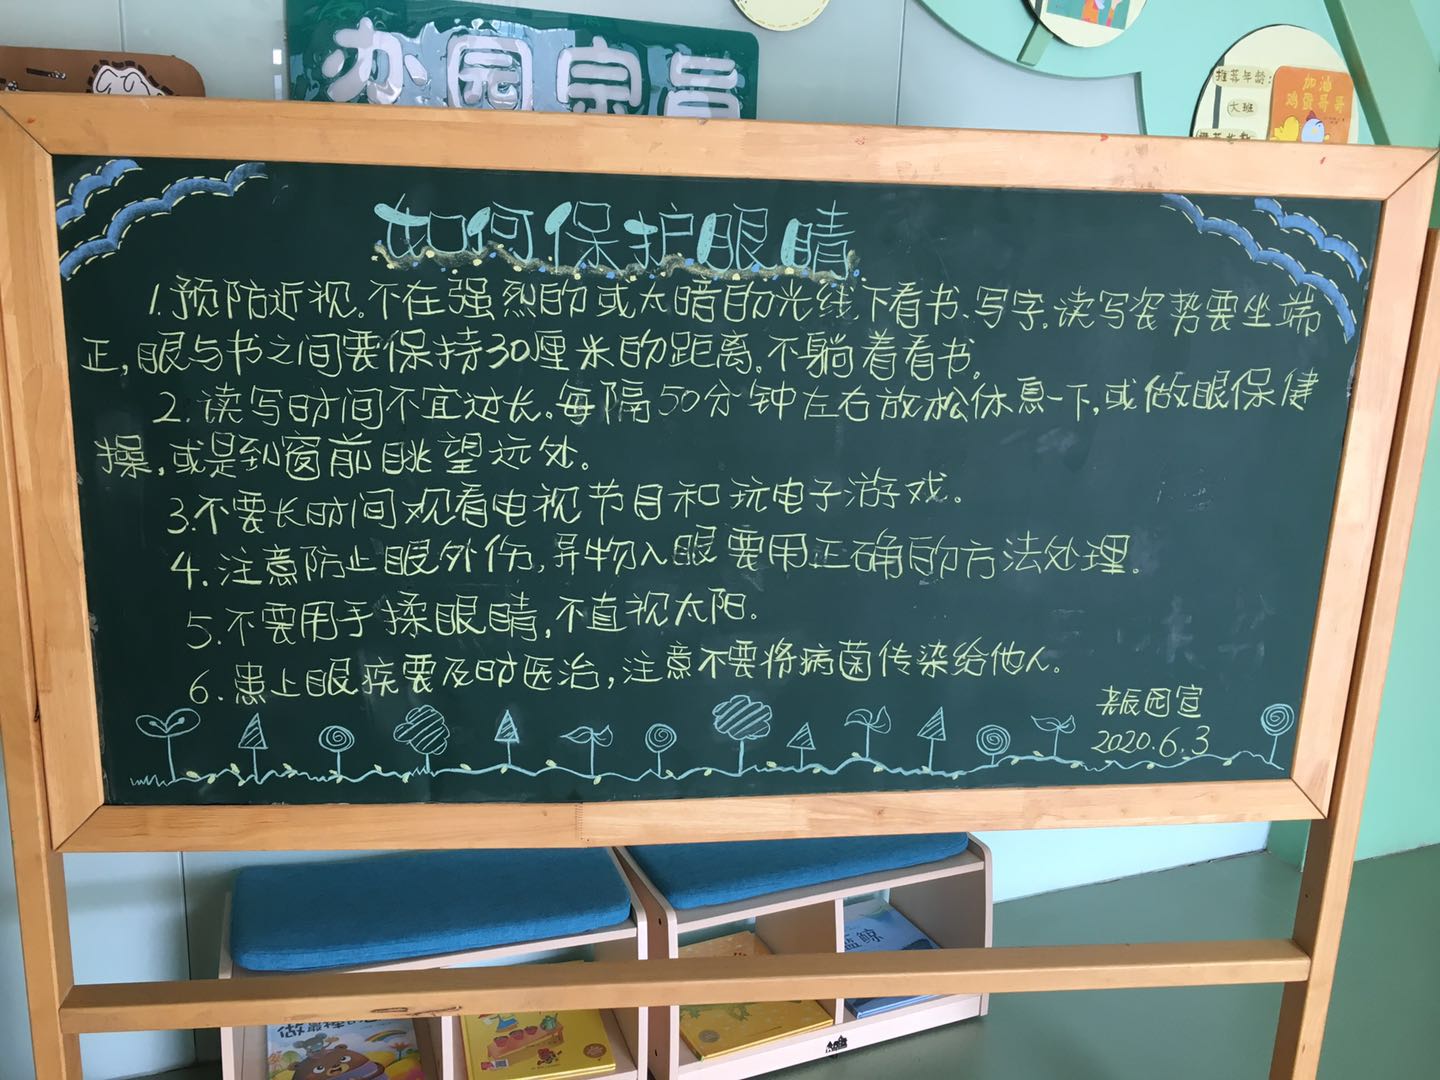 办园宗旨
推荐年龄：
大班
加油
鸡蛋哥哥
如何保护眼睛
1.预防近视。不在强烈的或太暗的光线下看书、写字。读写姿势要坐端
正，眼与书之间要保持30厘米的距离。不躺着看书。
2.读写时间不宜过长。每隔50分钟左右放松休息一下，或做眼保健
操，或是到窗前眺望远处。
3.不要长时间观看电视节目和玩电子游戏。
4.注意防止眼外伤，异物入眼要用正确的方法处理。
5.不要用手揉眼睛，不直视太阳。
6.患上眼疾要及时医治，注意不要将病菌传染给他人。
园宣
2020.6.3
蓝鲸
做最棒的